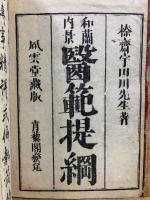 榛齋宇田川先生著
和蘭
内景
醫範提綱
風雲堂藏版
青藜閣發兌